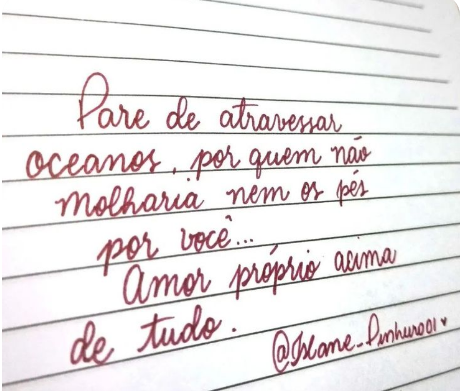 Pare de atravessar
oceanos, por quem não
molharia nem os pés
por você...
Amor próprio acima
de tudo.